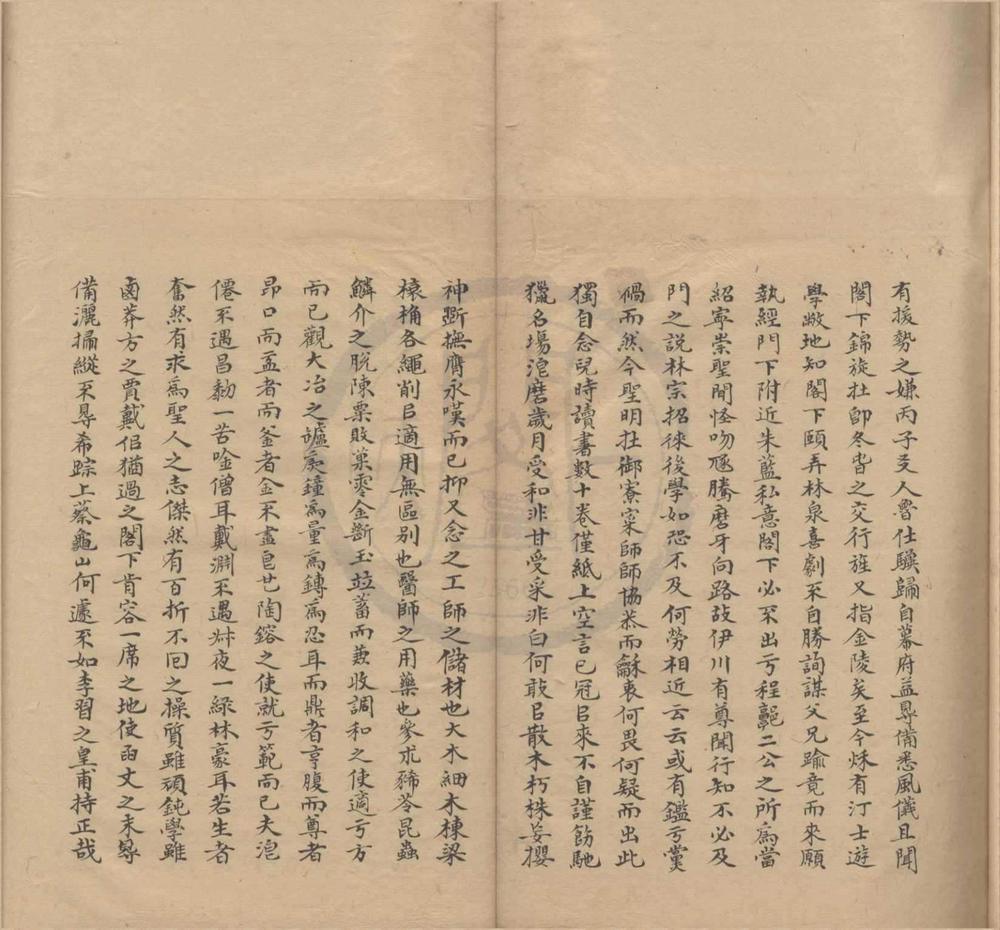 有援勢之嫌丙子支人魯仕驥歸自幕府益㝵備悉風儀且聞
閣下錦旋在卽冬春之交行旌又指金陵矣至今秌有汀士遊
學敝地知閣下頤弄林泉喜劇不自勝詢謀父兄踰竟而來願
執經門下附近朱藍私意閣下必不出亏程勰二公之所爲當
紹寧崇聖間怪吻豗騰磨牙向路故伊川有尊聞行知不必及
門之説林宗招徠後學如恐不及何勞相近云云或有鑑亏黨
禍而然今聖明在御寮寀師師協恭而龢衷何畏何疑而出此
獨自念兒時讀書數十卷僅紙上空言已冠㠯來不自謹飭馳
獵名場浥磨歲月受和非甘受采非白何敢㠯散木朽株妄攖
神斲撫膺永嘆而已抑又念之工師之儲材也大木細木棟梁
榱桷各繩削㠯適用無區别也醫師之用藥也參朮豨苓昆蟲
鱗介之脫陳粟敗菓零金斷玉竝蓄而兼收調和之使適亏方
而已觀大冶之罏㷊鐘爲量爲鏄爲忍耳而鼎者亨腹而尊者
昂口而盂者而釜者金不盡皀也陶鎔之使就亏範而已夫浥
僊不遇昌黎一苦唫僧耳戴淵不遇叔夜一綠林豪耳若生者
奮然有求爲聖人之志傑然有百折不回之操質雖頑鈍學雖
鹵莽方之賈戴侣猶過之閣下肯容一席之地使函丈之末㝵
備灑掃縱不㝵希踪上蔡龜山何遽不如李習之皇甫持正哉